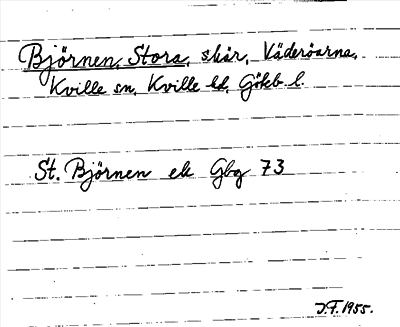 Björnen, Stora, skär, Väderöarna,
Kville sn, Kville hd, Götebl.
St. Björnen ek Gbg 73
J.F. 1955.